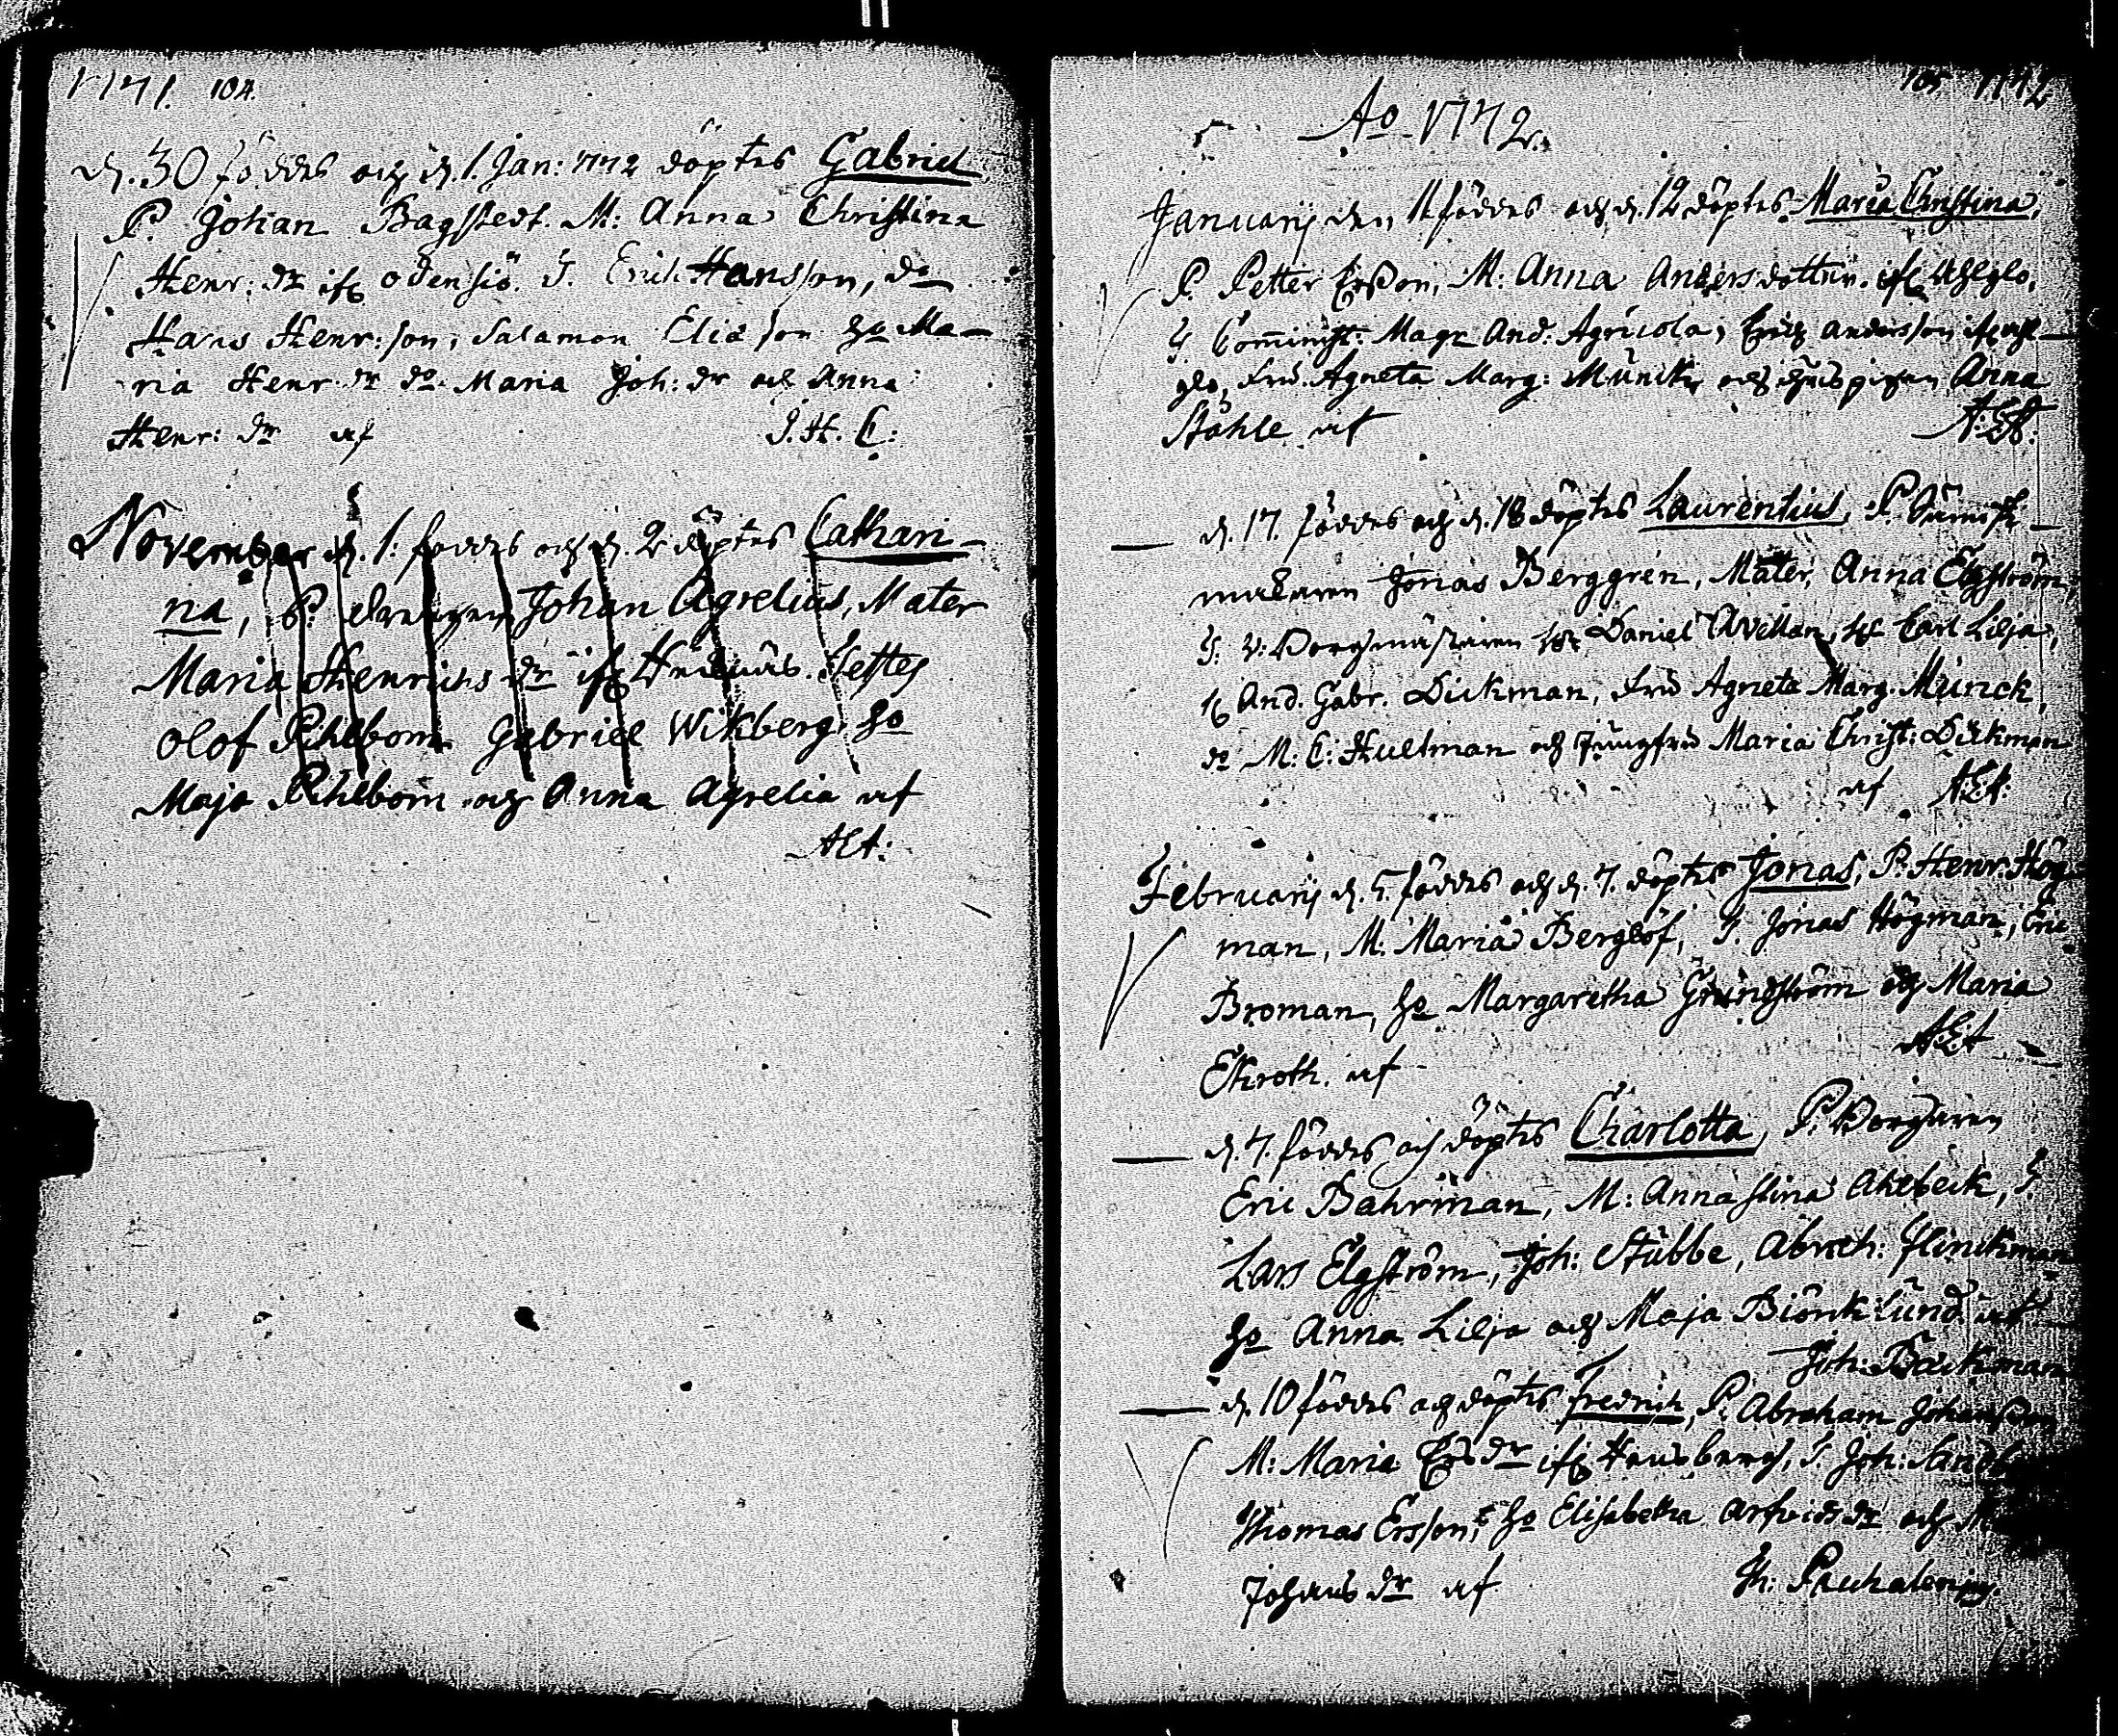 1771. 104.
d. 30 föddes och d. 1. Jan: 1772 döptes Gabriel
P. Johan Bagstedt. M: Anna Christina
Henr: dr ifr Odensiö. T. Erich Hansson, do
Hans Henr: son, Salamon Eliæ son ho Ma-
ria Henr dr do Maria Joh: dr och Anna
Henr: dr af J. H. C:
November d. 1. föddes och d. 2 döptes Cathari-
na, P. Johan Agrelius, Mater
Maria Henrichs dr ifr Testes
Olof Pihlbom Gabriel Wikberg ho
Maja Pihlbom och Anna Agrelia af
AEA:
105 1772
Ao 1772.
Januarij den 11 föddes och d. 12 döptes Maria Christina,
P. Petter Erßon, M: Anna Andersdotter. ifr
T. Comminist: Magr And: Agricola, Erich Andersson ifr
Fru Agneta Marg: Munck, och pigan Anna
Ståhle af A:EA:
d. 17. föddes och d. 18 döptes Laurentius, P.
makaren Jonas Berggren, Mater, Anna Elgström,
T: v: Borgmästaren Daniel Awellan, Carl Lilja,
And. Gabr. Dickman, Fru Agneta Marg. Munck,
do M: C: Hultman och Jungfru Maria Christ: Dickman
af AEA:
Februarij d. 5. föddes och d. 7. döptes Jonas, P. Henr. Hög-
man, M: Maria Berglöf, T. Jonas Högman, Eric
Broman, ho Margaretha Grundström och Maria
Ekroth. af AEA
d. 7. föddes och döptes Charlotta, P. Borgaren
Eric Bahrman, M: Anna Stina Ahlbeck, T.
Lars Elgström, Joh: Stubbe, Abrah: Flinckman
ho Anna Lilja och Maja Biörklund af
Joh: Backman
d. 10 föddes och döptes Fredrich, P. Abraham Johansson
M: Maria Ers dr ifr T. Joh:
Thomas Ersson, ho Elisabetha Arfvids dr och
Johans dr af